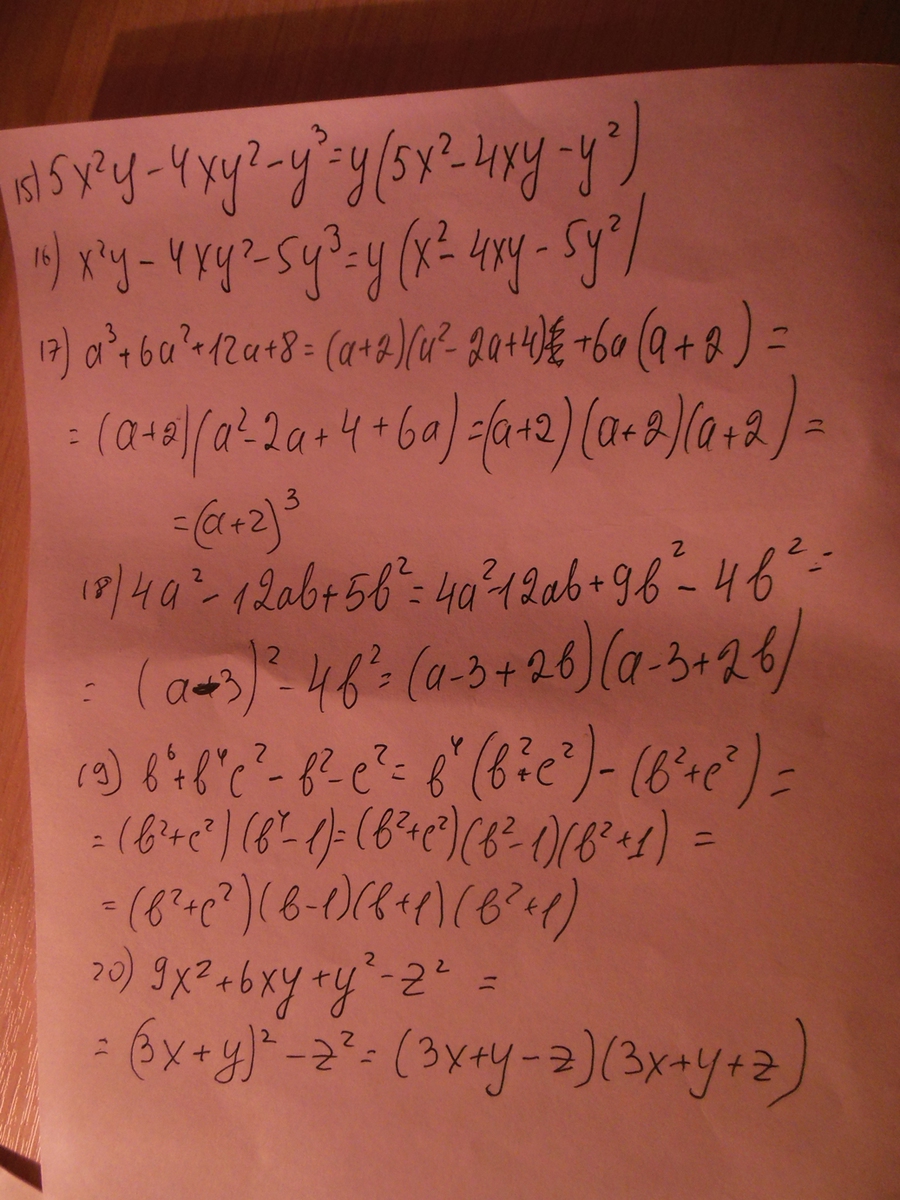 15) 5x²y - 4xy² - y³ = y(5x² - 4xy - y²)
16) x²y - 4xy² - 5y³ = y(x² - 4xy - 5y²)
17) a³ + 6a² + 12a + 8 = (a+2)(a² - 2a + 4) + 6a(a+2) =
= (a+2)(a² - 2a + 4 + 6a) = (a+2)(a+2)(a+2) =
= (a+2)³
18) 4a² - 12ab + 5b² = 4a² - 12ab + 9b² - 4b² =
= (a-3)² - 4b² = (a-3+2b)(a-3+2b)
19) b⁶ + b⁴c² - b² - c² = b⁴(b² + c²) - (b² + c²) =
= (b² + c²)(b⁴ - 1) = (b² + c²)(b² - 1)(b² + 1) =
= (b² + c²)(b - 1)(b + 1)(b² + 1)
20) 9x² + 6xy + y² - z² =
= (3x + y)² - z² = (3x + y - z)(3x + y + z)